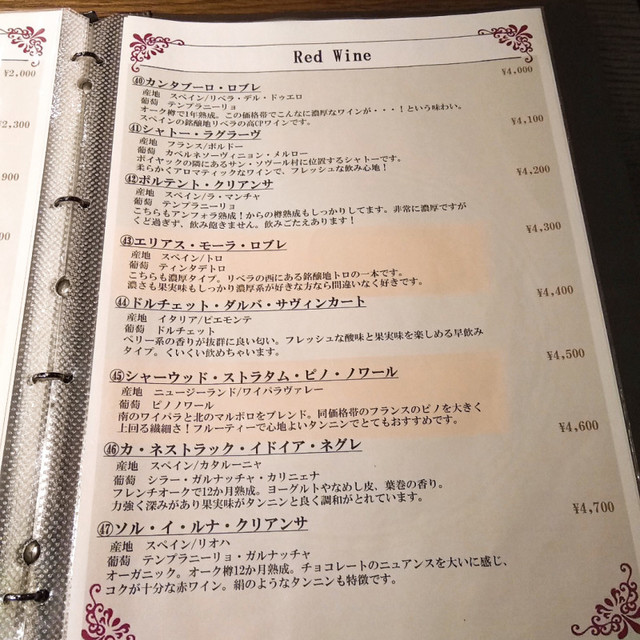 ¥2,000
¥2,300
900
00
Red Wine
¥4,000
㊵カンタブーロ・ロブレ
産地 スペイン/リベラ・デル・ドゥエロ
葡萄 テンプラニーリョ
オーク樽で1年熟成。この価格帯でこんなに濃厚なワインが・・・!という味わい。
スペインの銘醸地リベラの高CPワインです。
¥4,100
㊶シャトー・ラグラーヴ
産地 フランス/ボルドー
葡萄 カベルネソーヴィニョン・メルロー
ポイヤックの隣にあるサン・ソヴール村に位置するシャトーです。
柔らかくアロマティックなワインで、フレッシュな飲み心地!
¥4,200
㊷ポルテント・クリアンサ
産地 スペイン/ラ・マンチャ
葡萄 テンプラニーリョ
こちらもアンフォラ熟成!からの樽熟成もしっかりしてます。非常に濃厚ですが
くど過ぎず、飲み飽きません。飲みごたえあります!
¥4,300
㊸エリアス・モーラ・ロブレ
産地 スペイン/トロ
葡萄 ティンタデトロ
こちらも濃厚タイプ。リベラの西にある銘醸地トロの一本です。
濃さも果実味もしっかり濃厚系が好きな方なら間違いなく好きです。
¥4,400
㊹ドルチェット・ダルバ・サヴィンカート
産地 イタリア/ピエモンテ
葡萄 ドルチェット
ベリー系の香りが抜群に良い匂い。フレッシュな酸味と果実味を楽しめる早飲み
タイプ。くいくい飲めちゃいます。
¥4,500
㊺シャーウッド・ストラタム・ピノ・ノワール
産地 ニュージーランド/ワイパラヴァレー
葡萄 ピノノワール
南のワイパラと北のマルボロをブレンド。同価格帯のフランスのピノを大きく
上回る繊細さ!フルーティーで心地よいタンニンでとてもおすすめです。
¥4,600
㊻カ・ネストラック・イドイア・ネグレ
産地 スペイン/カタルーニャ
葡萄 シラー・ガルナッチャ・カリニェナ
フレンチオークで12か月熟成。ヨーグルトやなめし皮、葉巻の香り。
力強く深みがあり果実味がタンニンと良く調和がとれています。
¥4,700
㊼ソル・イ・ルナ・クリアンサ
産地 スペイン/リオハ
葡萄 テンプラニーリョ・ガルナッチャ
オーガニック。オーク樽12か月熟成。チョコレートのニュアンスを大いに感じ、
コクが十分な赤ワイン。絹のようなタンニンも特徴です。